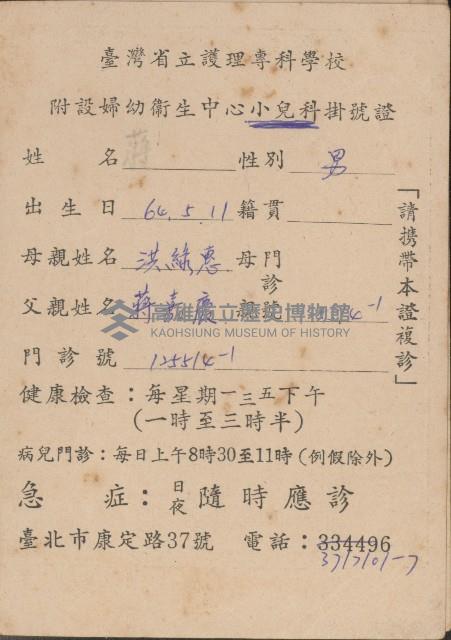 臺灣省立護理專科學校
附設婦幼衛生中心小兒科掛號證
姓名 蔣 性別 男
出生日 64.5.11 籍貫
母親姓名 洪綠惠 母親門診號 4-1
父親姓名 蔣嘉慶
門診號 125514-1
健康檢查：每星期一三五下午
(一時至三時半)
病兒門診：每日上午8時30至11時(例假除外)
急症：日夜隨時應診
臺北市康定路37號 電話：334496
371701-7
「請携帶本證複診」
高雄市立歷史博物館
KAOHSIUNG MUSEUM OF HISTORY